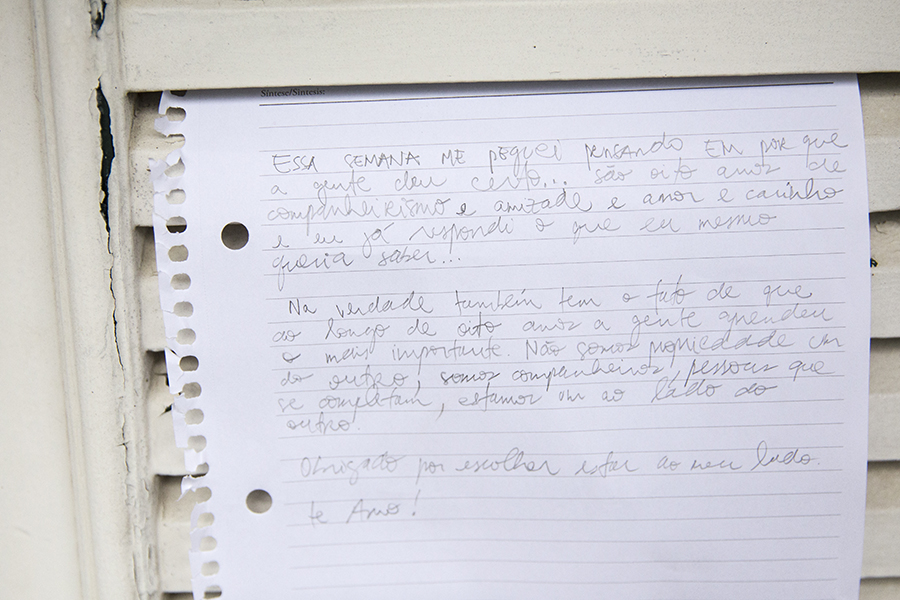 Síntese/Sintesis:
ESSA SEMANA ME PEGUEI PENSANDO EM POR QUE
a gente deu certo... são oito anos de
companheirismo e amizade e amor e carinho
e eu já respondi o que eu mesmo
queria saber...
Na verdade também tem o fato de que
ao longo de oito anos a gente aprendeu
o mais importante. Não somos propriedade um
do outro, somos companheiros, pessoas que
se completam, estamos um ao lado do
outro.
Obrigado por escolher estar ao meu lado.
te Amo!